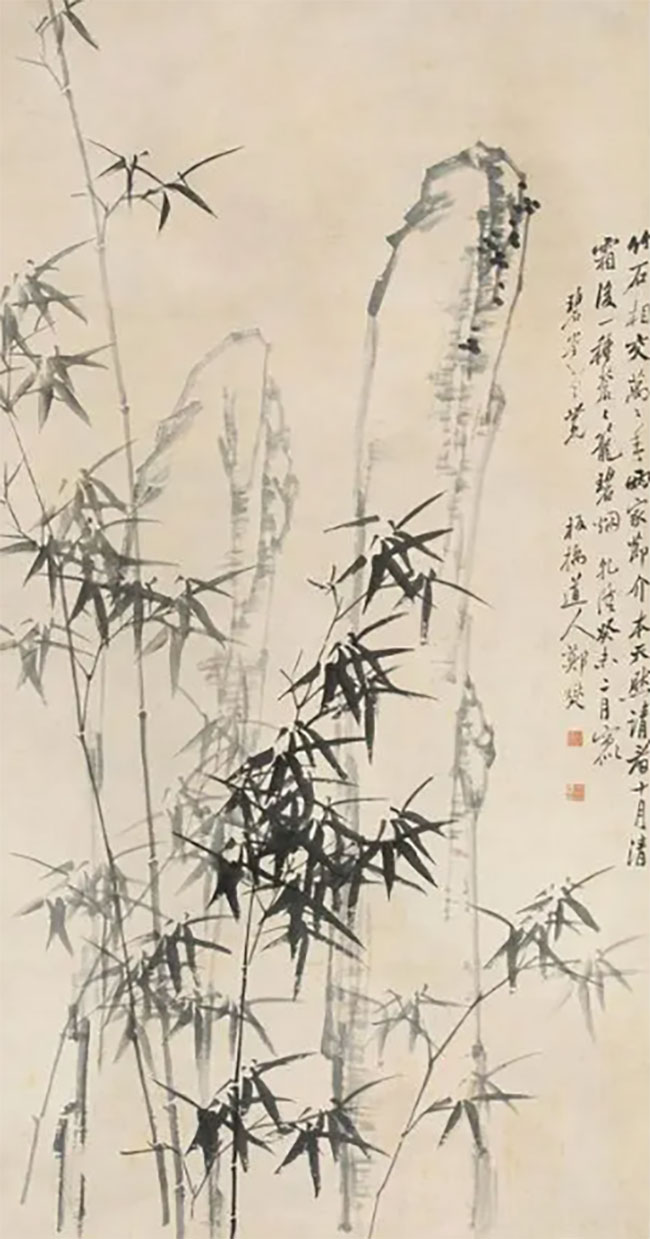 竹石相交萬〻年兩家節介本天然請看十月清
霜後一種蒼〻籠碧烟乾隆癸未二月寫似
碧板橋道人鄭燮